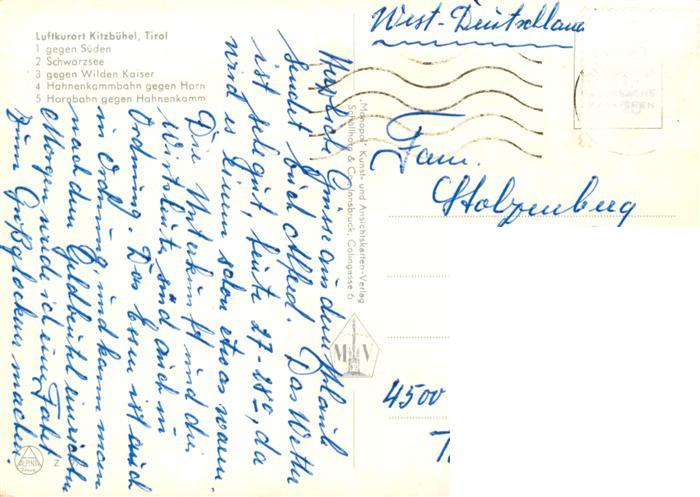 Luftkurort Kitzbühel, Tirol
1 gegen Süden
2 Schwarzsee
3 gegen Wilden Kaiser
4 Hahnenkammbahn gegen Horn
5 Hornbahn gegen Hahnenkamm
West-Deutschland
Fam.
Stolzenberg
4500
Herzliche Grüsse aus dem Urlaub
sendet Euch Alfred. Das Wetter
ist sehr gut, heute 27-28°, da
wird es einem schon etwas warm.
Die Unterkunft und die
Wirtsleute sind auch in
Ordnung. Das Essen ist auch
in Ordnung und kann man
nach dem Geldbeutel einrichten
Morgen werde ich eine Fahrt
zum Großglockner machen.
„Monopol" Kunst- und Ansichtskarten-Verlag
Schöllhorn & Co., Innsbruck, Colingasse 6
M V
ALPINA
Z